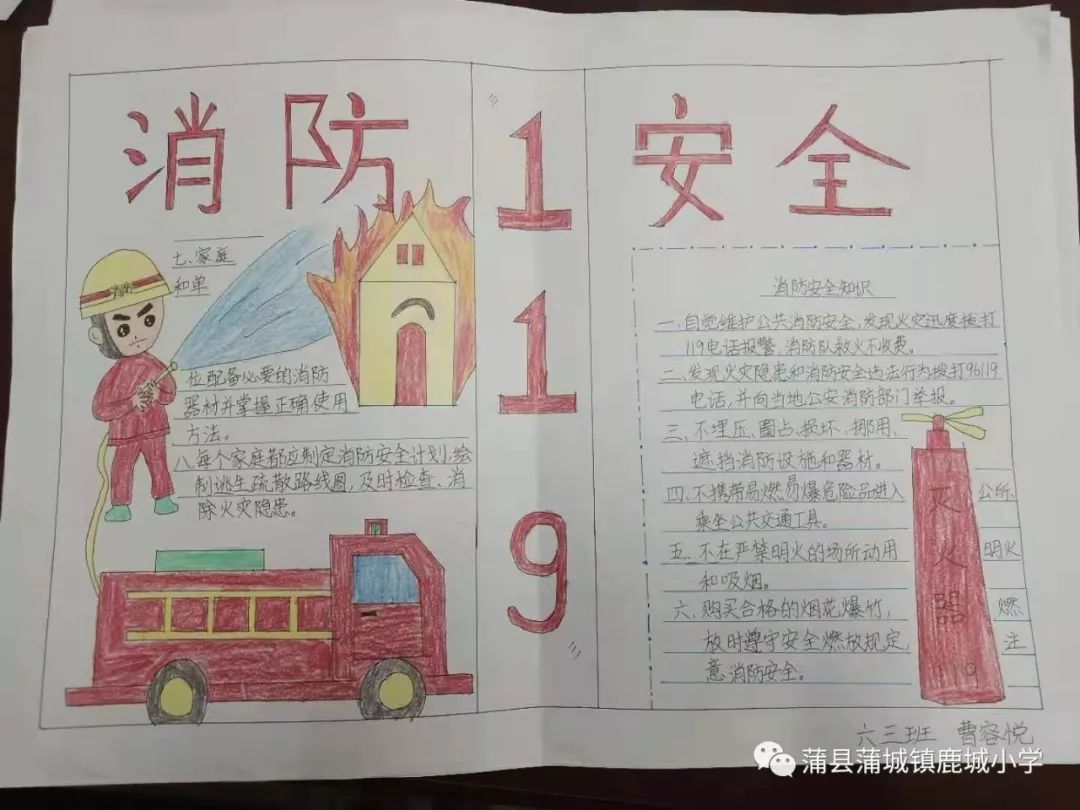 消防
119
安全
消防
七、家庭
和单
位配备必要的消防
器材并掌握正确使用
方法。
八、每个家庭都应制定消防安全计划,绘
制逃生疏散路线图,及时检查、消
除火灾隐患。
消防安全知识
一、自觉维护公共消防安全,发现火灾迅度拨打
119电话报警,消防队救火不收费。
二、发现火灾隐患和消防安全违法行为拨打96119
电话,并向当地公安消防部门举报。
三、不埋压、圈占、损坏、挪用、
遮挡消防设施和器材。
四、不携带易燃易爆危险品进入 公所、
乘坐公共交通工具。
五、不在严禁明火的场所动用 明火
和吸烟。
六、购买合格的烟花爆竹, 燃
放时遵守安全燃放规定, 注
意消防安全。
灭火器
119
六三班 曹容悦
蒲县蒲城镇鹿城小学